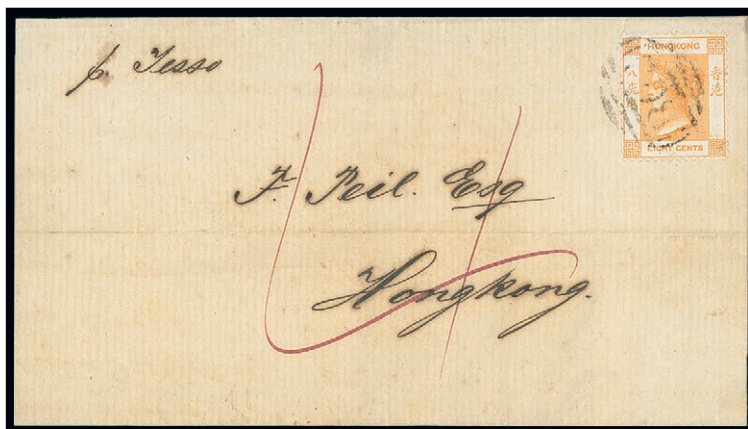 p. Yesso
HONGKONG
八先
香港
EIGHT CENTS
F. Peil. Esq
Hongkong.
4